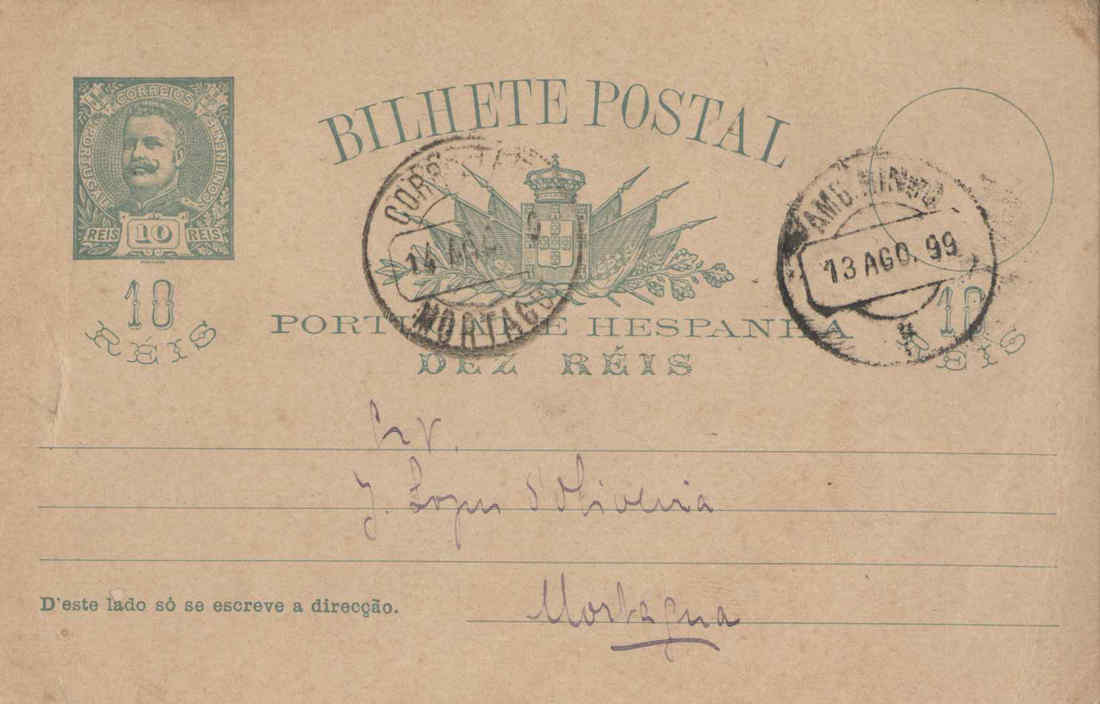 CORREIOS
PORTUGAL
CONTINENTE
REIS 10 REIS
BILHETE POSTAL
10
RÉIS
10
RÉIS
PORTUGAL E HESPANHA
DEZ RÉIS
14 AGO
MORTAGUA
AMB. MINHO
13 AGO. 99
J. Lopes d'Oliveira
D'este lado só se escreve a direcção.
Mortagua